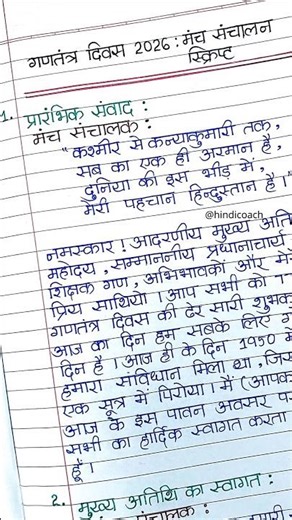 गणतंत्र दिवस 2026 : मंच संचालन
स्क्रिप्ट
1. प्रारंभिक संवाद :
मंच संचालक :
"कश्मीर से कन्याकुमारी तक,
सब का एक ही अरमान है,
दुनिया की इस भीड़ में,
मेरी पहचान हिन्दुस्तान है।"
@hindicoach_
नमस्कार ! आदरणीय मुख्य
महोदय, सम्माननीय प्रधानाचार्य
शिक्षक गण, अभिभावकों और
प्रिय साथियो । आप सभी को
गणतंत्र दिवस की ढेर सारी
आज का दिन हम सबके लिए
दिन है । आज ही के दिन 1950
हमारा संविधान मिला था,
एक सूत्र में पिरोया । मैं (आपका
आज के इस पावन अवसर पर
सभी का हार्दिक स्वागत करता
हूँ ।
2. मुख्य अतिथि का स्वागत :
संचालक :